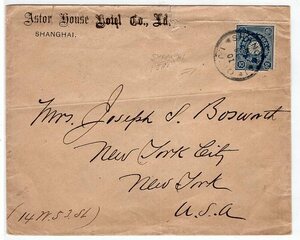 Astor House Hotel Co., Ld.
SHANGHAI.
Mrs. Joseph S. Bosworth
New York City
New York
U.S.A
(14 W. 53. St)